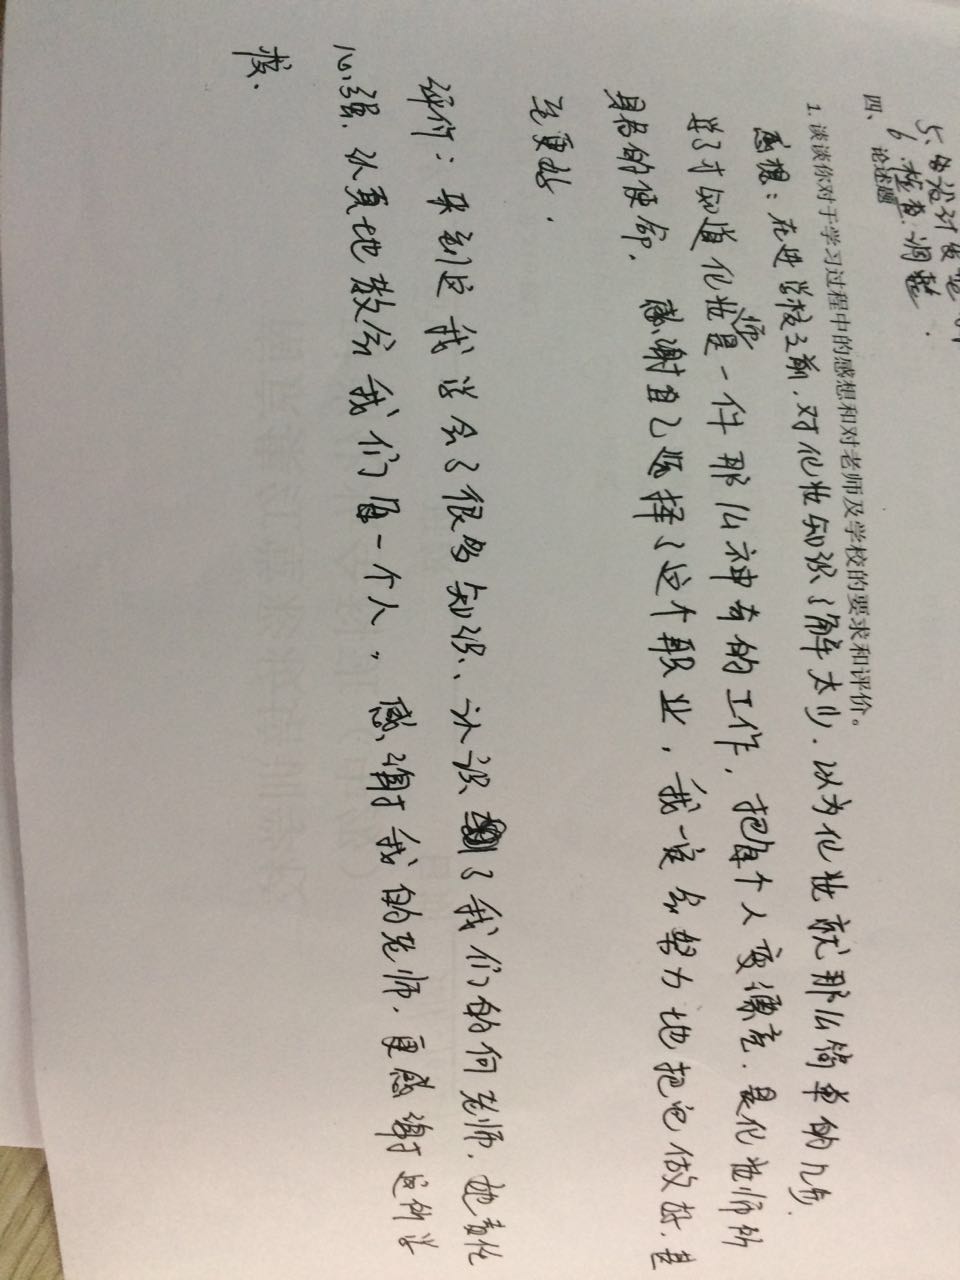 5、
6、检查、调整.
四、论述题
1. 谈谈你对于学习过程中的感想和对老师及学校的要求和评价。
感想：在进学校之前，对化妆知识了解太少，以为化妆就那么简单的几步，
学了才知道化妆师是一件那么神奇的工作，把每个人变漂亮，是化妆师所
具备的使命，感谢自己选择了这个职业，我一定会努力地把它做好，甚
至更好.
评价：来到这我学会了很多知识、认识了我们的何老师，她责任
心强，认真地教会我们每一个人，感谢我的老师，更感谢这所学
校.